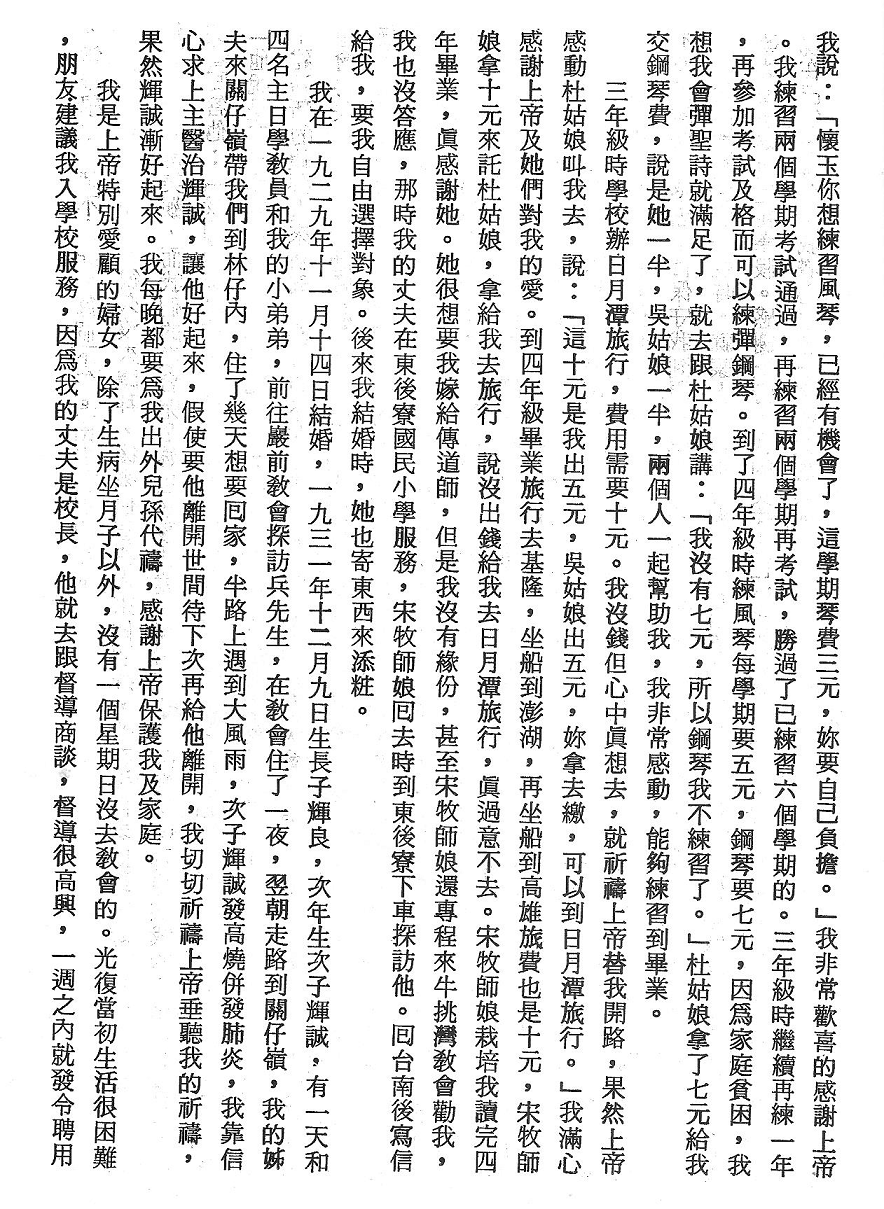 我說：「懷玉你想練習風琴，已經有機會了，這學期琴費三元，妳要自己負擔。」我非常歡喜的感謝上帝
。我練習兩個學期考試通過，再練習兩個學期再考試，勝過了已練習六個學期的。三年級時繼續再練一年
，再參加考試及格而可以練彈鋼琴。到了四年級時練風琴每學期要五元，鋼琴要七元，因爲家庭貧困，我
想我會彈聖詩就滿足了，就去跟杜姑娘講：「我沒有七元，所以鋼琴我不練習了。」杜姑娘拿了七元給我
交鋼琴費，說是她一半，吳姑娘一半，兩個人一起幫助我，我非常感動，能夠練習到畢業。
三年級時學校辦日月潭旅行，費用需要十元。我沒錢但心中眞想去，就祈禱上帝替我開路，果然上帝
感動杜姑娘叫我去，說：「這十元是我出五元，吳姑娘出五元，妳拿去繳，可以到日月潭旅行。」我滿心
感謝上帝及她們對我的愛。到四年級畢業旅行去基隆，坐船到澎湖，再坐船到高雄旅費也是十元，宋牧師
娘拿十元來託杜姑娘，拿給我去旅行，說沒出錢給我去日月潭旅行，眞過意不去。宋牧師娘栽培我讀完四
年畢業，眞感謝她。她很想要我嫁給傳道師，但是我沒有緣份，甚至宋牧師娘還專程來牛挑灣敎會勸我，
我也沒答應，那時我的丈夫在東後寮國民小學服務，宋牧師娘回去時到東後寮下車探訪他。回台南後寫信
給我，要我自由選擇對象。後來我結婚時，她也寄東西來添粧。
我在一九二九年十一月十四日結婚，一九三一年十二月九日生長子輝良，次年生次子輝誠，有一天和
四名主日學敎員和我的小弟弟，前往巖前敎會探訪兵先生，在敎會住了一夜，翌朝走路到關仔嶺，我的姊
夫來關仔嶺帶我們到林仔內，住了幾天想要回家，半路上遇到大風雨，次子輝誠發高燒併發肺炎，我靠信
心求上主醫治輝誠，讓他好起來，假使要他離開世間待下次再給他離開，我切切祈禱上帝垂聽我的祈禱，
果然輝誠漸好起來。我每晚都要爲我出外兒孫代禱，感謝上帝保護我及家庭。
我是上帝特別愛顧的婦女，除了生病坐月子以外，沒有一個星期日沒去敎會的。光復當初生活很困難
，朋友建議我入學校服務，因爲我的丈夫是校長，他就去跟督導商談，督導很高興，一週之內就發令聘用